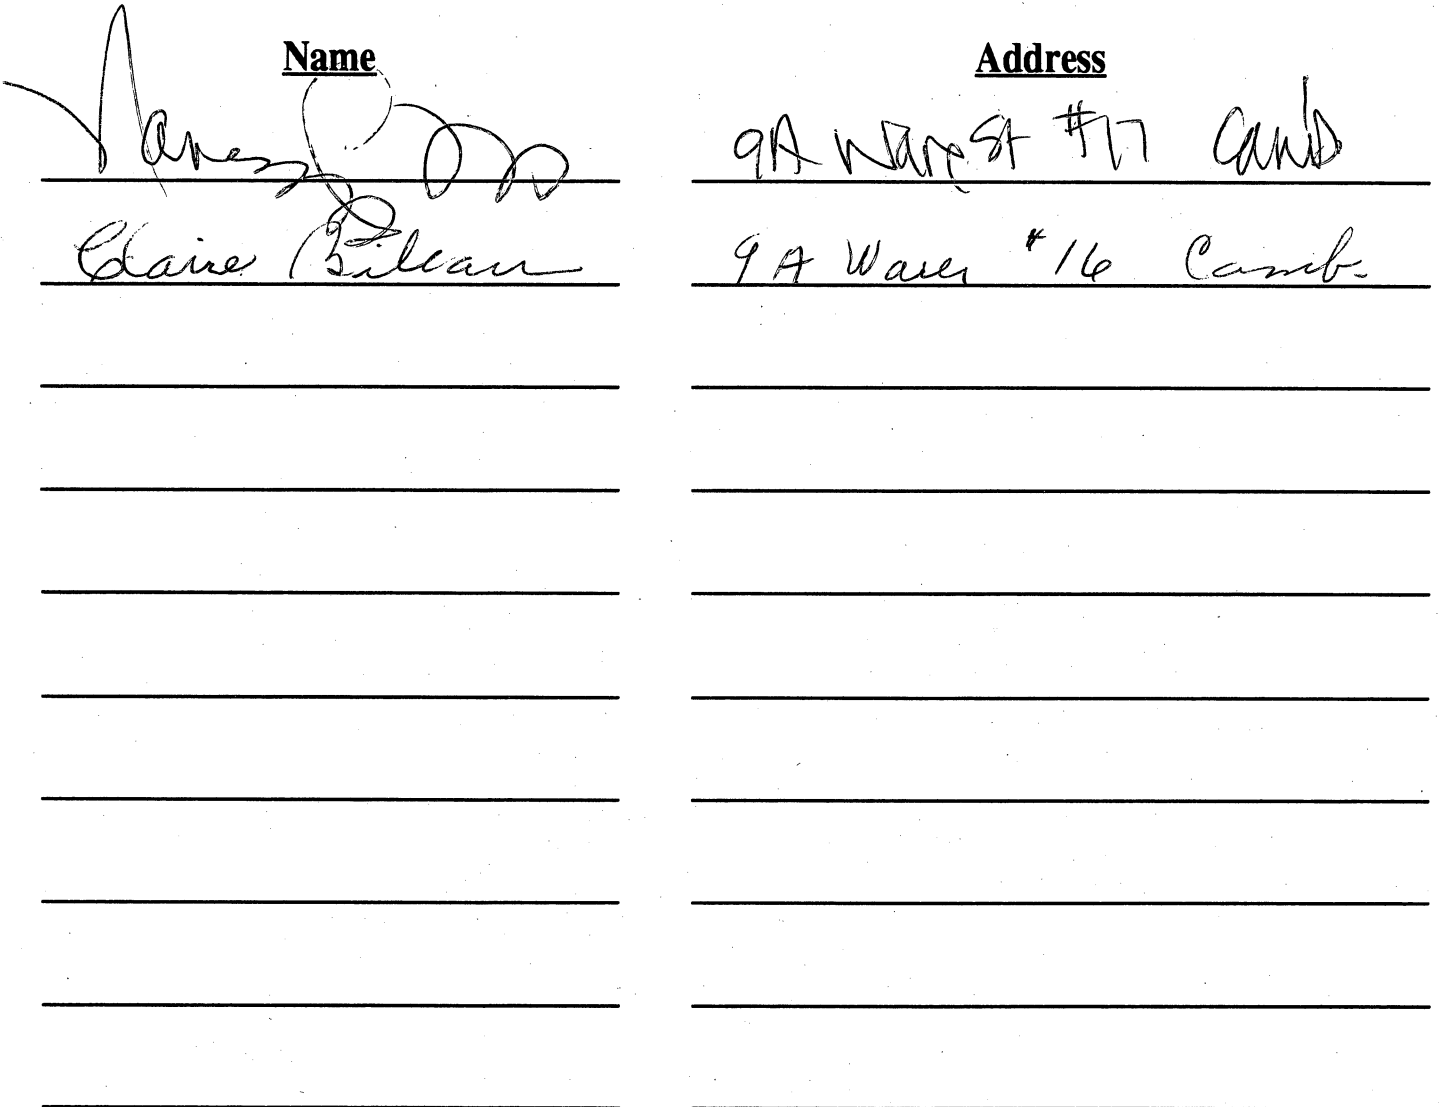 Name Address
Nancy 9A Ware St #17 Camb
Claire Bileau 9A Ware #16 Camb.